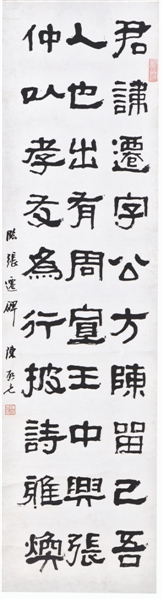 君諱遷字公方陳留己吾
人也出有周宣王中興張
仲以孝友為行披詩雅煥
臨張遷碑 陳